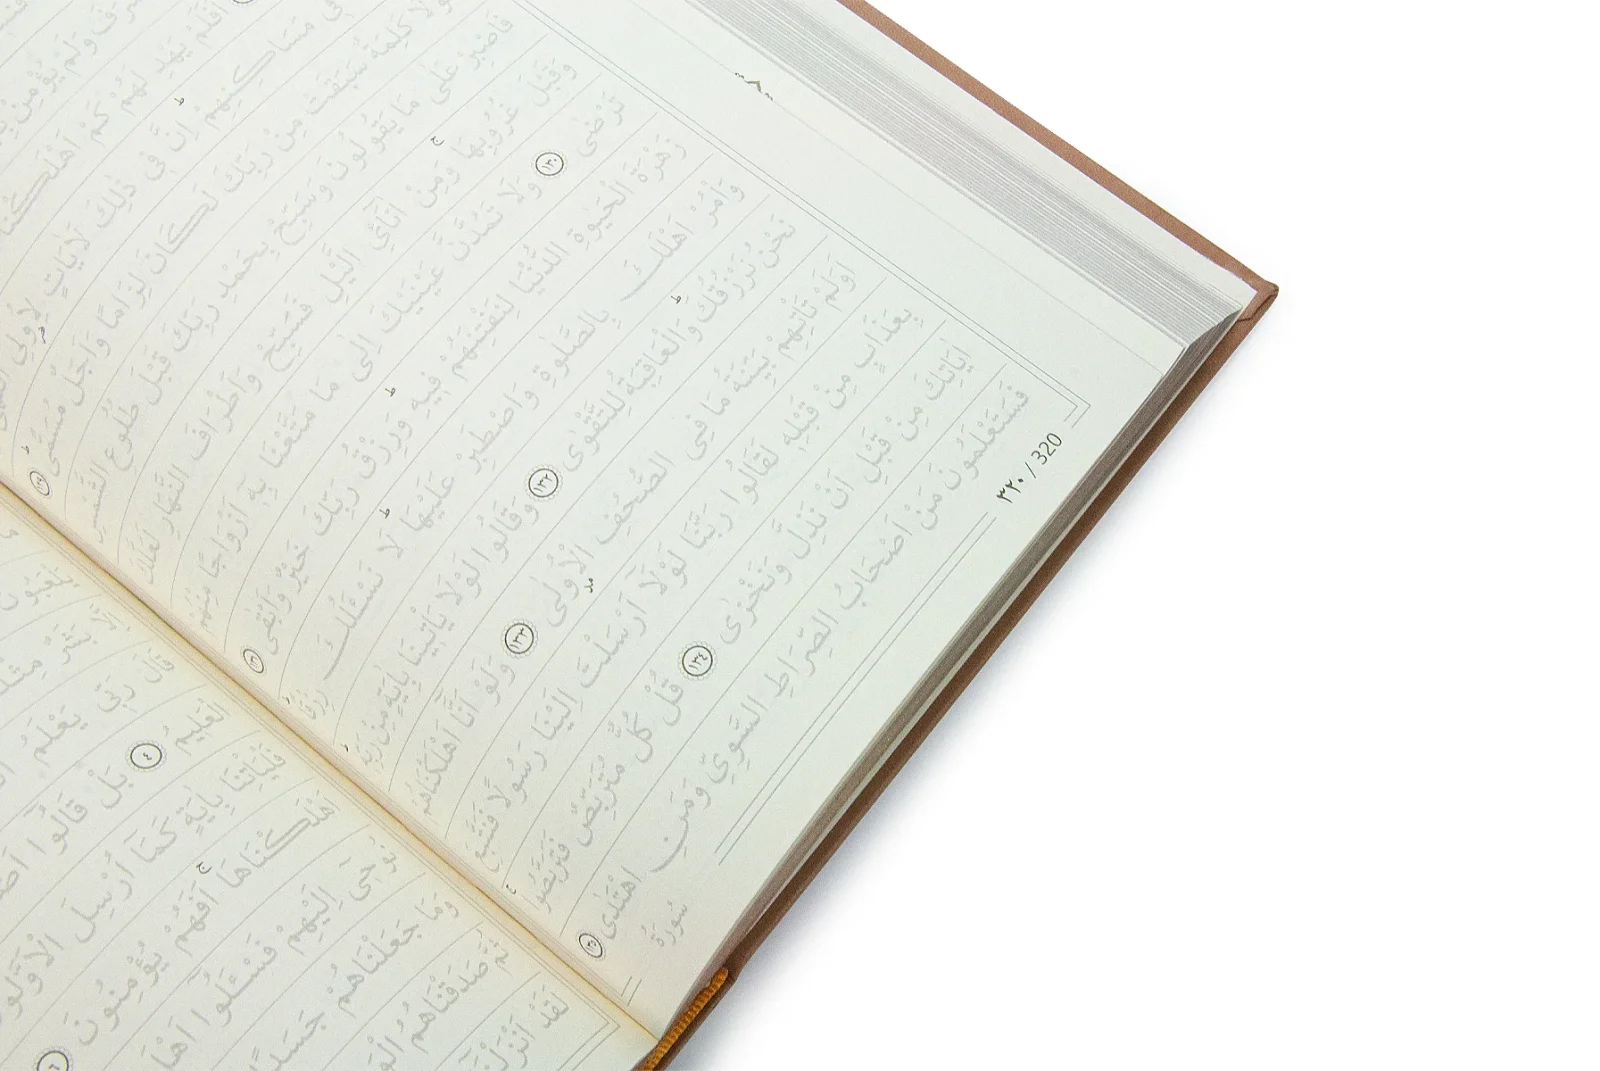 وَلَمْ يُؤْمِنْ
اَفَلَمْ يَهْدِ لَهُمْ كَمْ اَهْلَكْنَا
فِى مَسَاكِنِهِمْ اِنَّ فِى ذٰلِكَ لَاٰيَاتٍ لِاُولِى
وَلَوْلَا كَلِمَةٌ سَبَقَتْ مِنْ رَبِّكَ لَكَانَ لِزَامًا وَاَجَلٌ مُسَمًّى ١٢٩
فَاصْبِرْ عَلٰى مَا يَقُولُونَ وَسَبِّحْ بِحَمْدِ رَبِّكَ قَبْلَ طُلُوعِ الشَّمْسِ
وَقَبْلَ غُرُوبِهَا وَمِنْ اٰنَآئِ الَّيْلِ فَسَبِّحْ وَاَطْرَافَ النَّهَارِ لَعَلَّكَ
تَرْضٰى ١٣٠ وَلَا تَمُدَّنَّ عَيْنَيْكَ اِلٰى مَا مَتَّعْنَا بِهٖ اَزْوَاجًا مِنْهُمْ
زَهْرَةَ الْحَيٰوةِ الدُّنْيَا لِنَفْتِنَهُمْ فِيهِ وَرِزْقُ رَبِّكَ خَيْرٌ وَاَبْقٰى ١٣١
وَأْمُرْ اَهْلَكَ بِالصَّلٰوةِ وَاصْطَبِرْ عَلَيْهَا لَا نَسْـَٔلُكَ رِزْقًا
نَحْنُ نَرْزُقُكَ وَالْعَاقِبَةُ لِلتَّقْوٰى ١٣٢ وَقَالُوا لَوْلَا يَأْتِينَا بِاٰيَةٍ مِنْ رَبِّهٖ
اَوَلَمْ تَأْتِهِمْ بَيِّنَةُ مَا فِى الصُّحُفِ الْاُولٰى ١٣٣ وَلَوْ اَنَّا اَهْلَكْنَاهُمْ
بِعَذَابٍ مِنْ قَبْلِهٖ لَقَالُوا رَبَّنَا لَوْلَا اَرْسَلْتَ اِلَيْنَا رَسُولًا فَنَتَّبِعَ
اٰيَاتِكَ مِنْ قَبْلِ اَنْ نَذِلَّ وَنَخْزٰى ١٣٤ قُلْ كُلٌّ مُتَرَبِّصٌ فَتَرَبَّصُوا
فَسَتَعْلَمُونَ مَنْ اَصْحَابُ الصِّرَاطِ السَّوِيِّ وَمَنِ اهْتَدٰى ١٣٥
سُورَةُ
٣٢٠ / 320
يَلْعَبُونَ
بَشَرٌ
قَالَ رَبِّى يَعْلَمُ
الْعَلِيمُ ٤ بَلْ قَالُوا
فَلْيَأْتِنَا بِاٰيَةٍ كَمَا اُرْسِلَ الْاَوَّلُونَ
اَهْلَكْنَاهَا اَفَهُمْ يُؤْمِنُونَ ٦
نُوحِى اِلَيْهِمْ فَسْـَٔلُوا
وَمَا جَعَلْنَاهُمْ جَسَدًا
ثُمَّ صَدَقْنَاهُمُ
لَقَدْ اَنْزَلْنَا